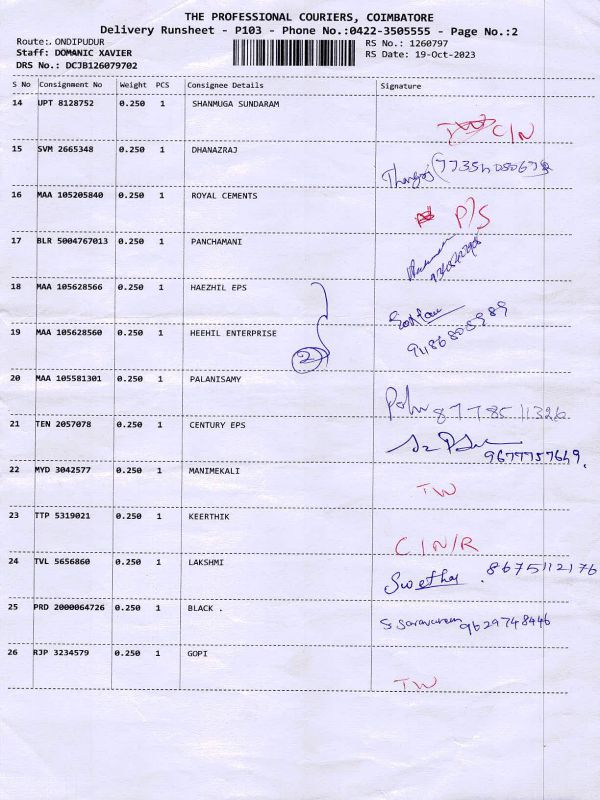 THE PROFESSIONAL COURIERS, COIMBATORE
Delivery Runsheet - P103 - Phone No.:0422-3505555 - Page No.:2
Route:. ONDIPUDUR
RS No.: 1260797
Staff: DOMANIC XAVIER
RS Date: 19-Oct-2023
DRS No.: DCJB126079702
S No Consignment No Weight PCS Consignee Details Signature
14 UPT 8128752 0.250 1 SHANMUGA SUNDARAM
C/N
15 SVM 2665348 0.250 1 DHANAZRAJ
16 MAA 105205840 0.250 1 ROYAL CEMENTS
P/S
17 BLR 5004767013 0.250 1 PANCHAMANI
18 MAA 105628566 0.250 1 HAEZHIL EPS
19 MAA 105628560 0.250 1 HEEHIL ENTERPRISE
2
20 MAA 105581301 0.250 1 PALANISAMY
8778511326
21 TEN 2057078 0.250 1 CENTURY EPS
9677757649.
22 MYD 3042577 0.250 1 MANIMEKALI
TW
23 TTP 5319021 0.250 1 KEERTHIK
C/N/R
24 TVL 5656860 0.250 1 LAKSHMI
Swetha. 8675112176
25 PRD 2000064726 0.250 1 BLACK .
9629748446
26 RJP 3234579 0.250 1 GOPI
TW